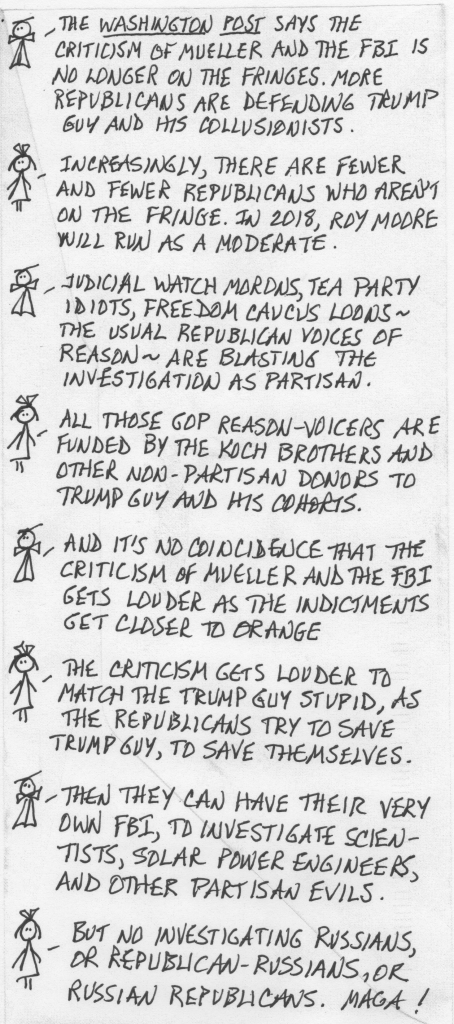 THE WASHINGTON POST SAYS THE
CRITICISM OF MUELLER AND THE FBI IS
NO LONGER ON THE FRINGES. MORE
REPUBLICANS ARE DEFENDING TRUMP
GUY AND HIS COLLUSIONISTS.
INCREASINGLY, THERE ARE FEWER
AND FEWER REPUBLICANS WHO AREN'T
ON THE FRINGE. IN 2018, ROY MOORE
WILL RUN AS A MODERATE.
JUDICIAL WATCH MORONS, TEA PARTY
IDIOTS, FREEDOM CAUCUS LOONS~
THE USUAL REPUBLICAN VOICES OF
REASON~ ARE BLASTING THE
INVESTIGATION AS PARTISAN.
ALL THOSE GOP REASON-VOICERS ARE
FUNDED BY THE KOCH BROTHERS AND
OTHER NON-PARTISAN DONORS TO
TRUMP GUY AND HIS COHORTS.
AND IT'S NO COINCIDENCE THAT THE
CRITICISM OF MUELLER AND THE FBI
GETS LOUDER AS THE INDICTMENTS
GET CLOSER TO ORANGE
THE CRITICISM GETS LOUDER TO
MATCH THE TRUMP GUY STUPID, AS
THE REPUBLICANS TRY TO SAVE
TRUMP GUY, TO SAVE THEMSELVES.
THEN THEY CAN HAVE THEIR VERY
OWN FBI, TO INVESTIGATE SCIEN-
TISTS, SOLAR POWER ENGINEERS,
AND OTHER PARTISAN EVILS.
BUT NO INVESTIGATING RUSSIANS,
OR REPUBLICAN-RUSSIANS, OR
RUSSIAN REPUBLICANS. MAGA!